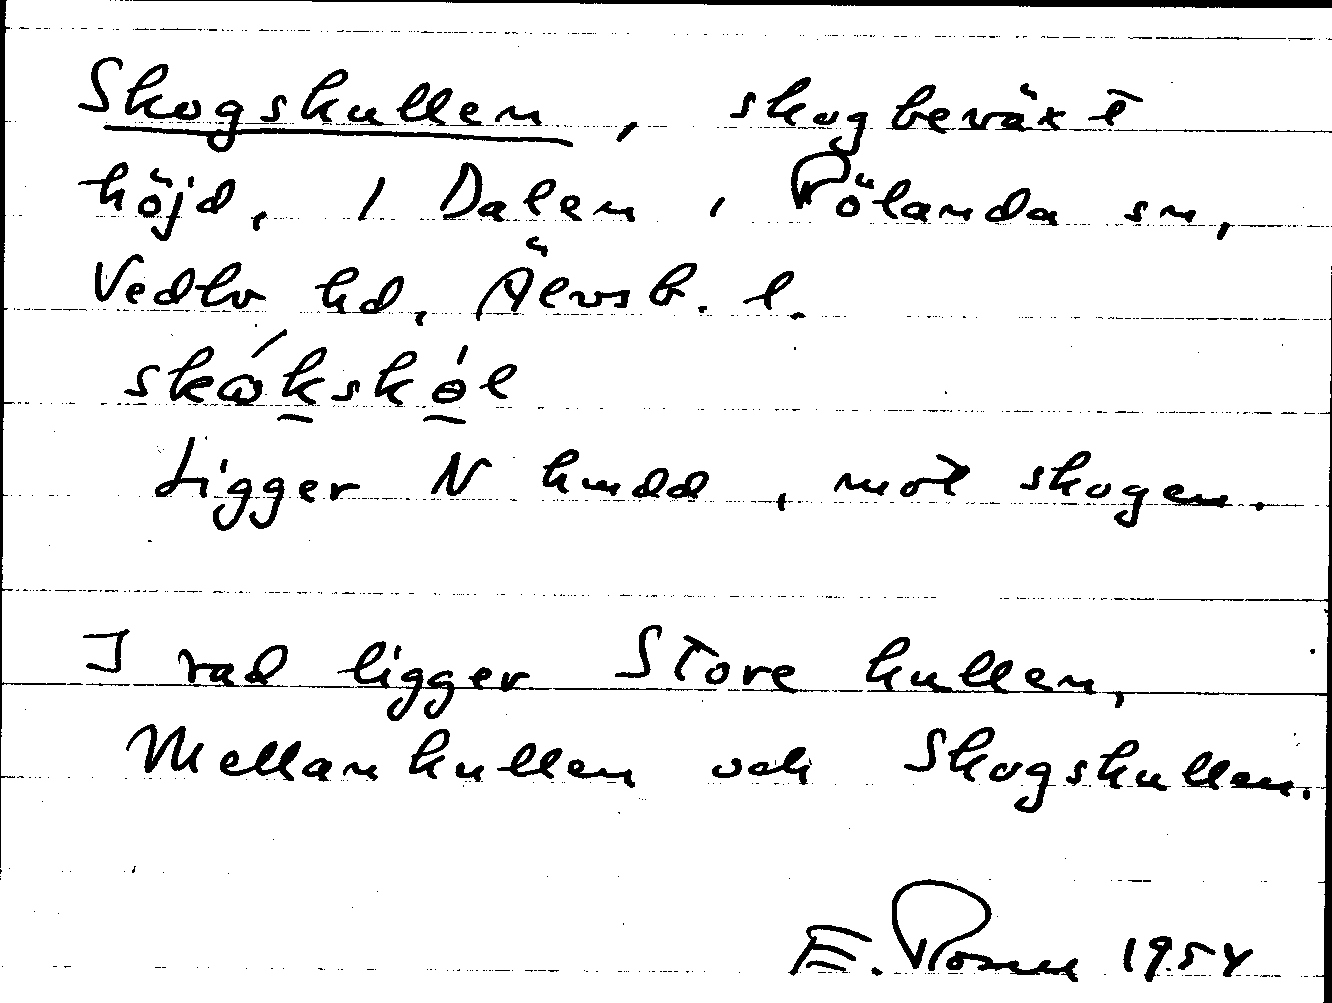 Skogskullen, skogbeväxt
höjd, 1 Dalen i Rölanda sn,
Vedbo hd, Älvsb. l.
Ligger N hmdd, mot skogen.
I rad ligger Store kullen,
Mellankullen och Skogskullen.
E. Rosell 1954